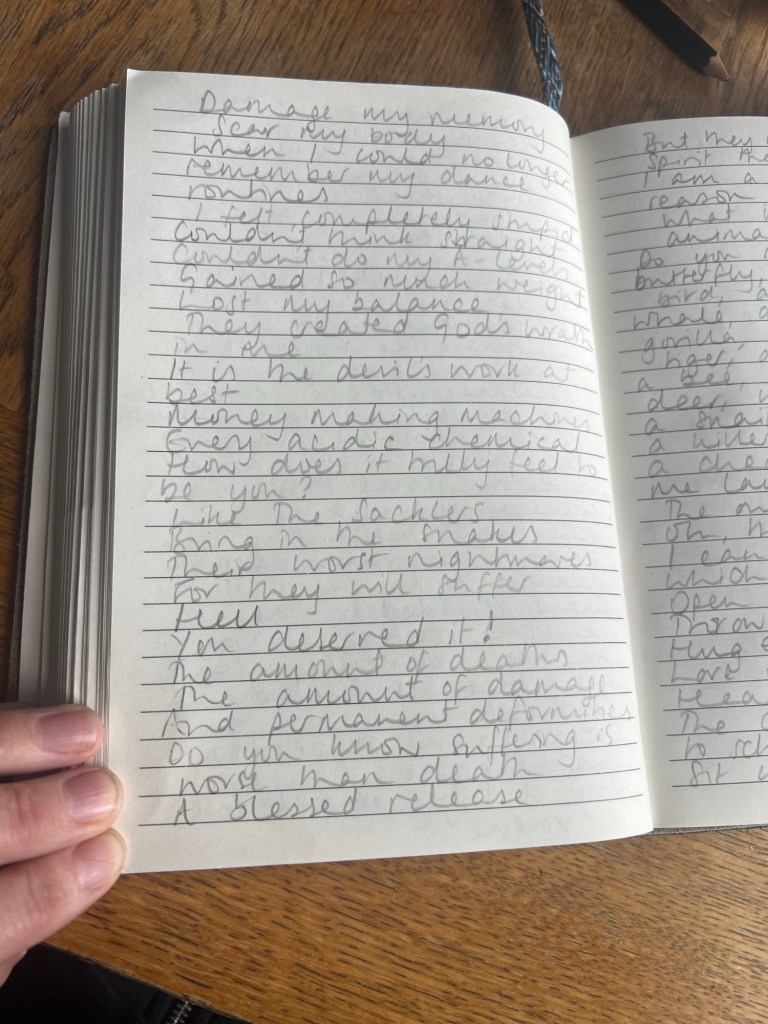 Damage my memory
Scar my body
When I could no longer
remember my dance
routines
I felt completely stupid
Couldn't think straight
Couldn't do my A-Levels
Gained so much weight
Lost my balance
They created God's wrath
in me
It is the devil's work at
best
Money making machines
Grey acidic chemical
How does it truly feel to
be you?
Like the Sacklers
Bring in the snakes
Their worst nightmares
For they will suffer
Hell
You deserved it!
The amount of deaths
The amount of damage
And permanent deformities
Do you know suffering is
worse than death
A blessed release
But they
Spirit the
I am a
reason
what i
anima
Do you
butterfly
bird, a
whale a
gorilla,
tiger, a
a bee,
deer,
a snail
a
a che
me
The
Oh,
I can
which
Open
Throw
Hug
Love
Hea
The
to sch
Sit